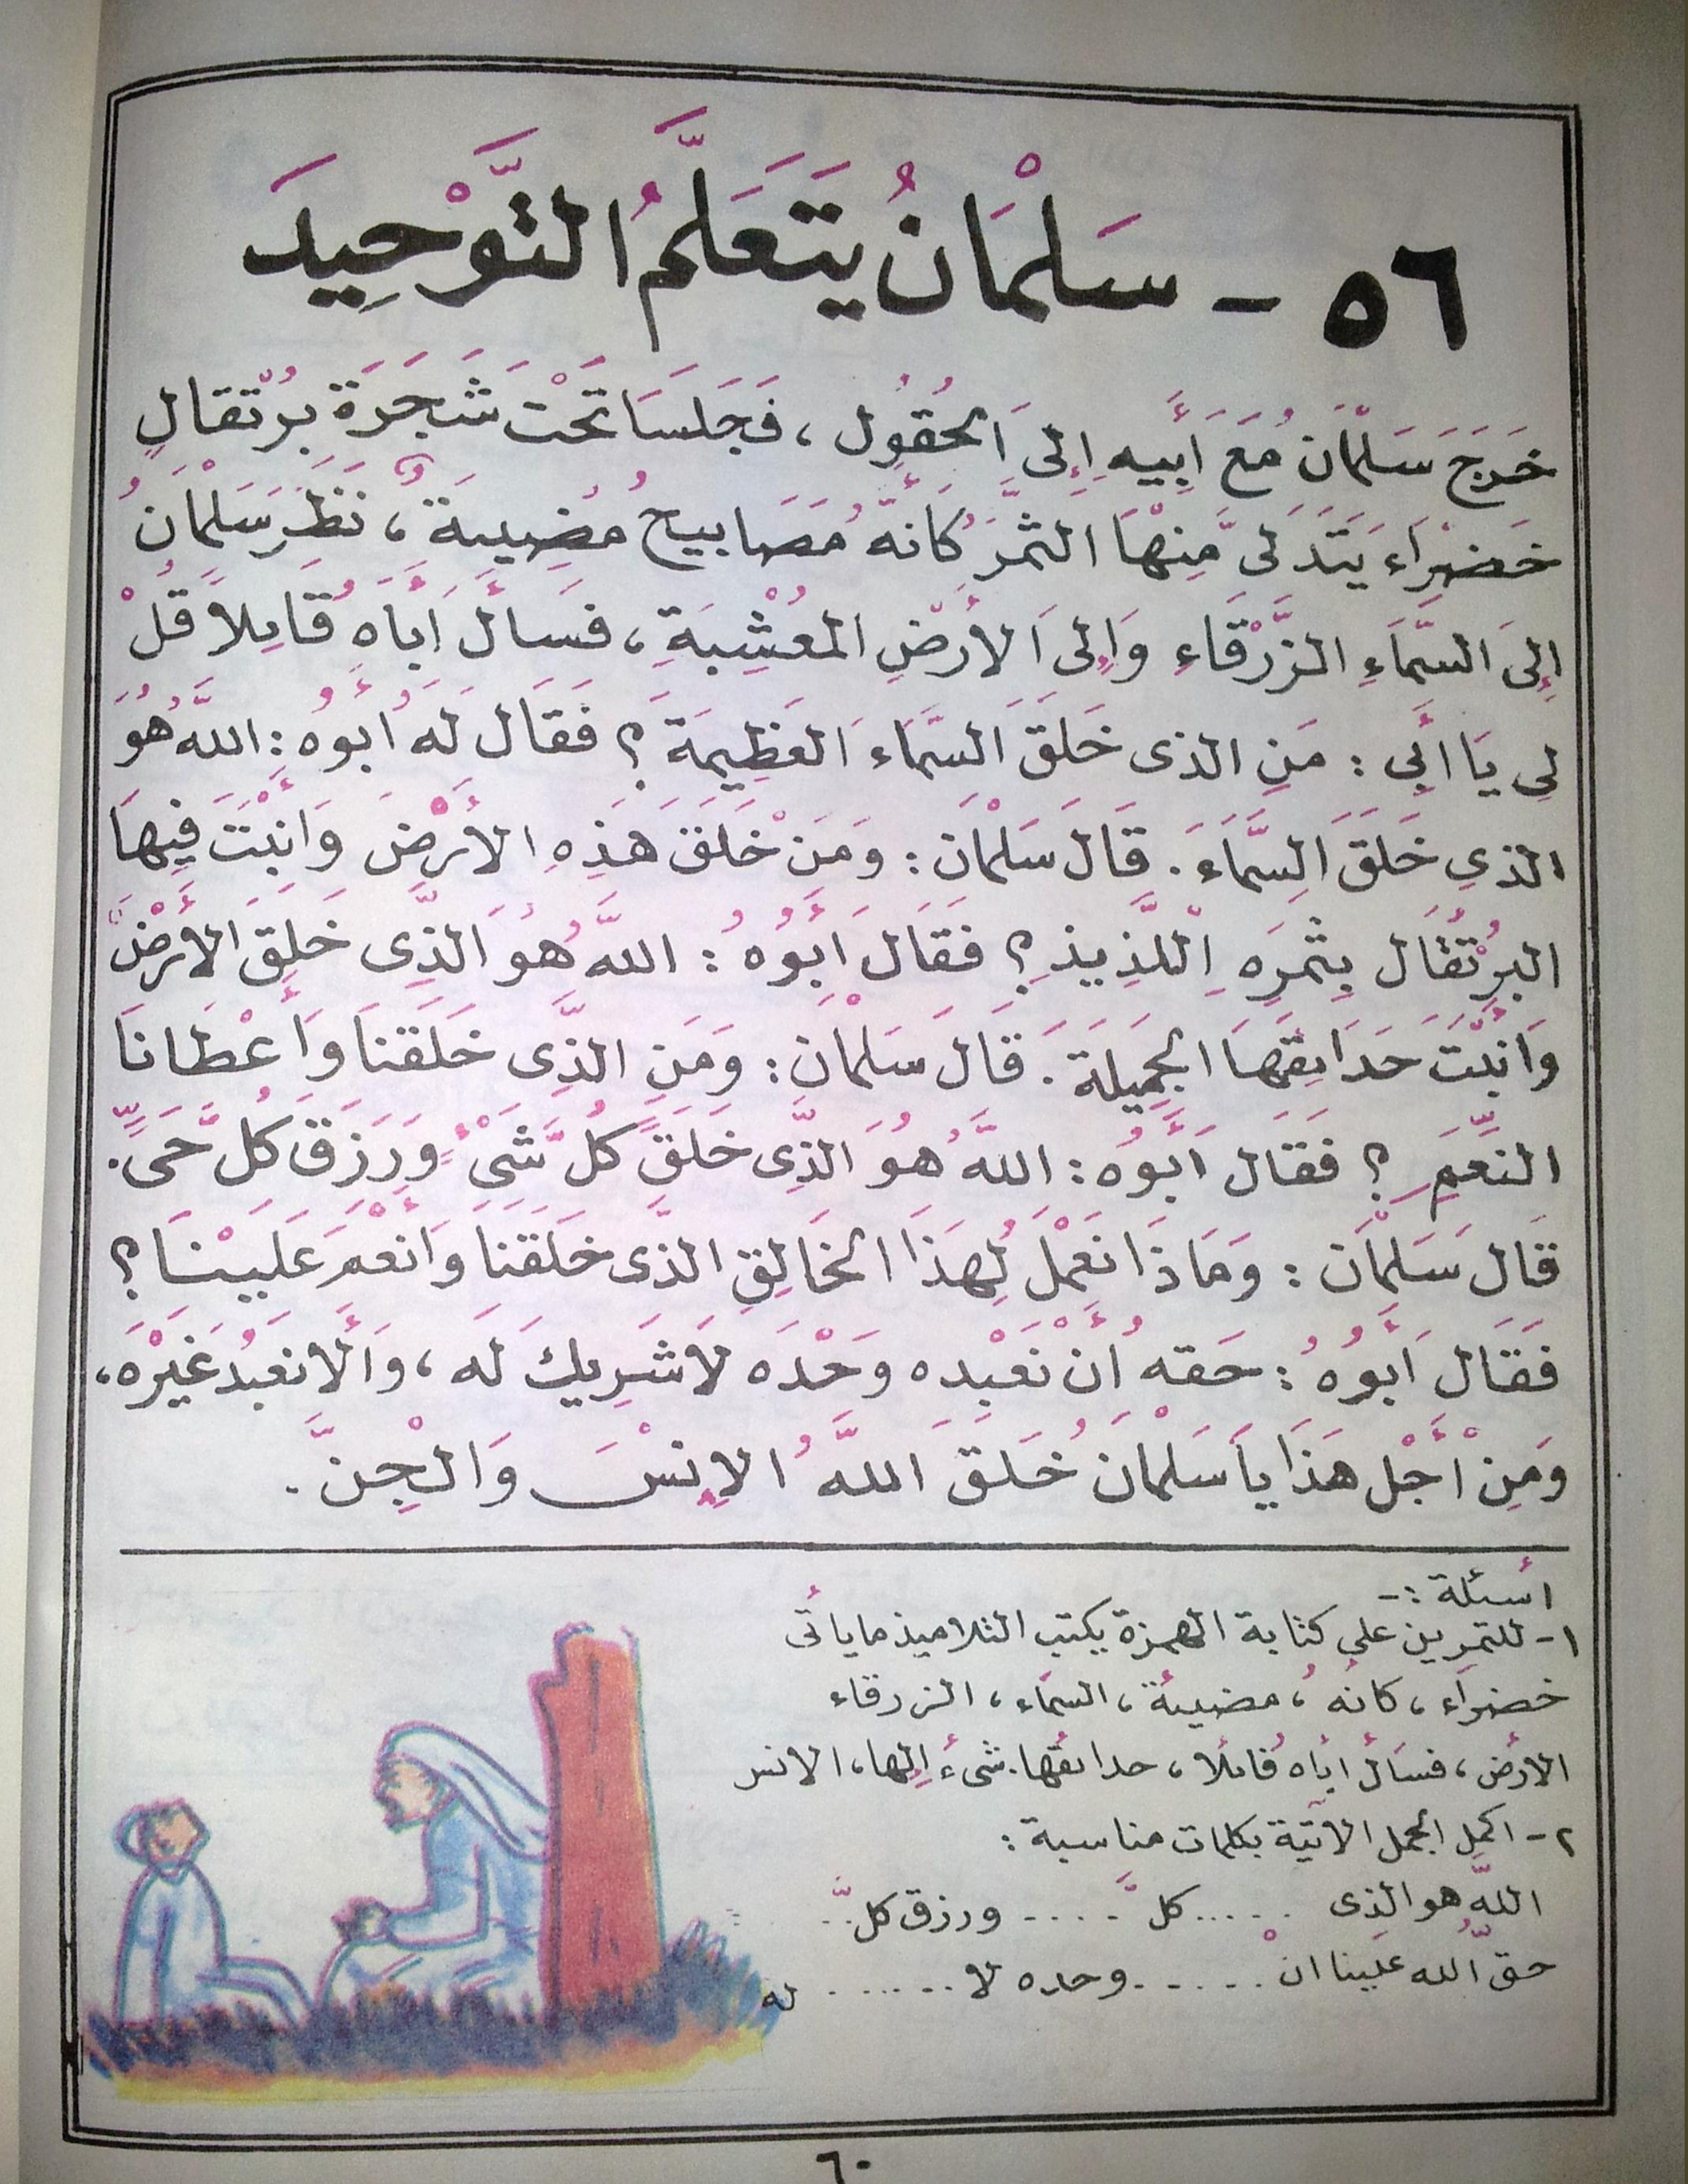 ٥٦ - سَلْمَانُ يَتَعَلَّمُ التَّوْحِيدَ
خَرَجَ سَلْمَانُ مَعَ أَبِيهِ إِلىَ الحُقُولِ ، فَجَلَسَا تَحْتَ شَجَرَةِ بُرْتقالٍ
خَضْرَاءَ يَتَدَلىَّ مِنْهَا الثَّمَرُ كَأَنَّهُ مَصَابيحُ مُضِيئَةٌ ، نَظَرَ سَلْمَانُ
إِلىَ السَّمَاءِ الزَّرْقَاءِ وَإِلىَ الأَرْضِ المُعْشِبَةِ ، فَسَأَلَ أَبَاهُ قَائِلاً قُلْ
لِي يَا أَبِي : مَنِ الذى خَلَقَ السَّمَاءَ العَظِيمَةَ ؟ فَقَالَ لَهُ أَبُوهُ : اللَّهُ هُوَ
الذي خَلَقَ السَّمَاءَ . قَالَ سَلْمَان : وَمَنْ خَلَقَ هَذِهِ الأَرْضَ وَأَنْبَتَ فِيهَا
البُرْتُقَال بِثَمَرِهِ اللَّذِيذِ ؟ فَقَالَ أَبُوهُ : اللَّهُ هُوَ الَّذِى خَلَقَ الأَرْضَ
وَأَنْبَتَ حَدَائِقَهَا الجَمِيلَةَ . قَالَ سَلْمَان : وَمَنِ الذَّى خَلَقَنَا وَأَعْطَانَا
النِّعَمَ ؟ فَقَالَ أَبُوهُ : اللَّهُ هُوَ الَّذِى خَلَقَ كُلَّ شَىْءٍ وَرَزَقَ كُلَّ حَىٍّ .
قَالَ سَلْمَان : وَمَاذَا نَعْمَلُ لِهَذَا الخَالِقِ الذَّى خَلَقَنَا وَأَنْعَمَ عَلَيْنَا ؟
فَقَالَ أَبُوهُ : حَقهُ أَنْ نَعْبُده وَحْدَه لاَشَرِيكَ لَه ، وَأَلا نَعْبُدَ غَيْرَه ،
وَمِنْ أَجْلِ هَذَا يَا سَلْمَانُ خَلَقَ اللَّهُ الإِنْسَ وَالْجِنَّ .
أسئلة :-
١- للتمرين على كتابة الهمزة يكتب التلاميذ ما يأتى
خضراء ، كأنهُ ، مضيئة ، السماء ، الزرقاء
الأرض ، فسأل أباه قائلا ، حدائقها . شىء إلها ، الانس
٢- اكمل الجمل الآتية بكلمات مناسبة :
اللَّه هو الذى ..... كلَّ .... ورزق كلَّ ..
حقّ اللَّه علينا انْ ..... وحده لا ...... له
٦٠